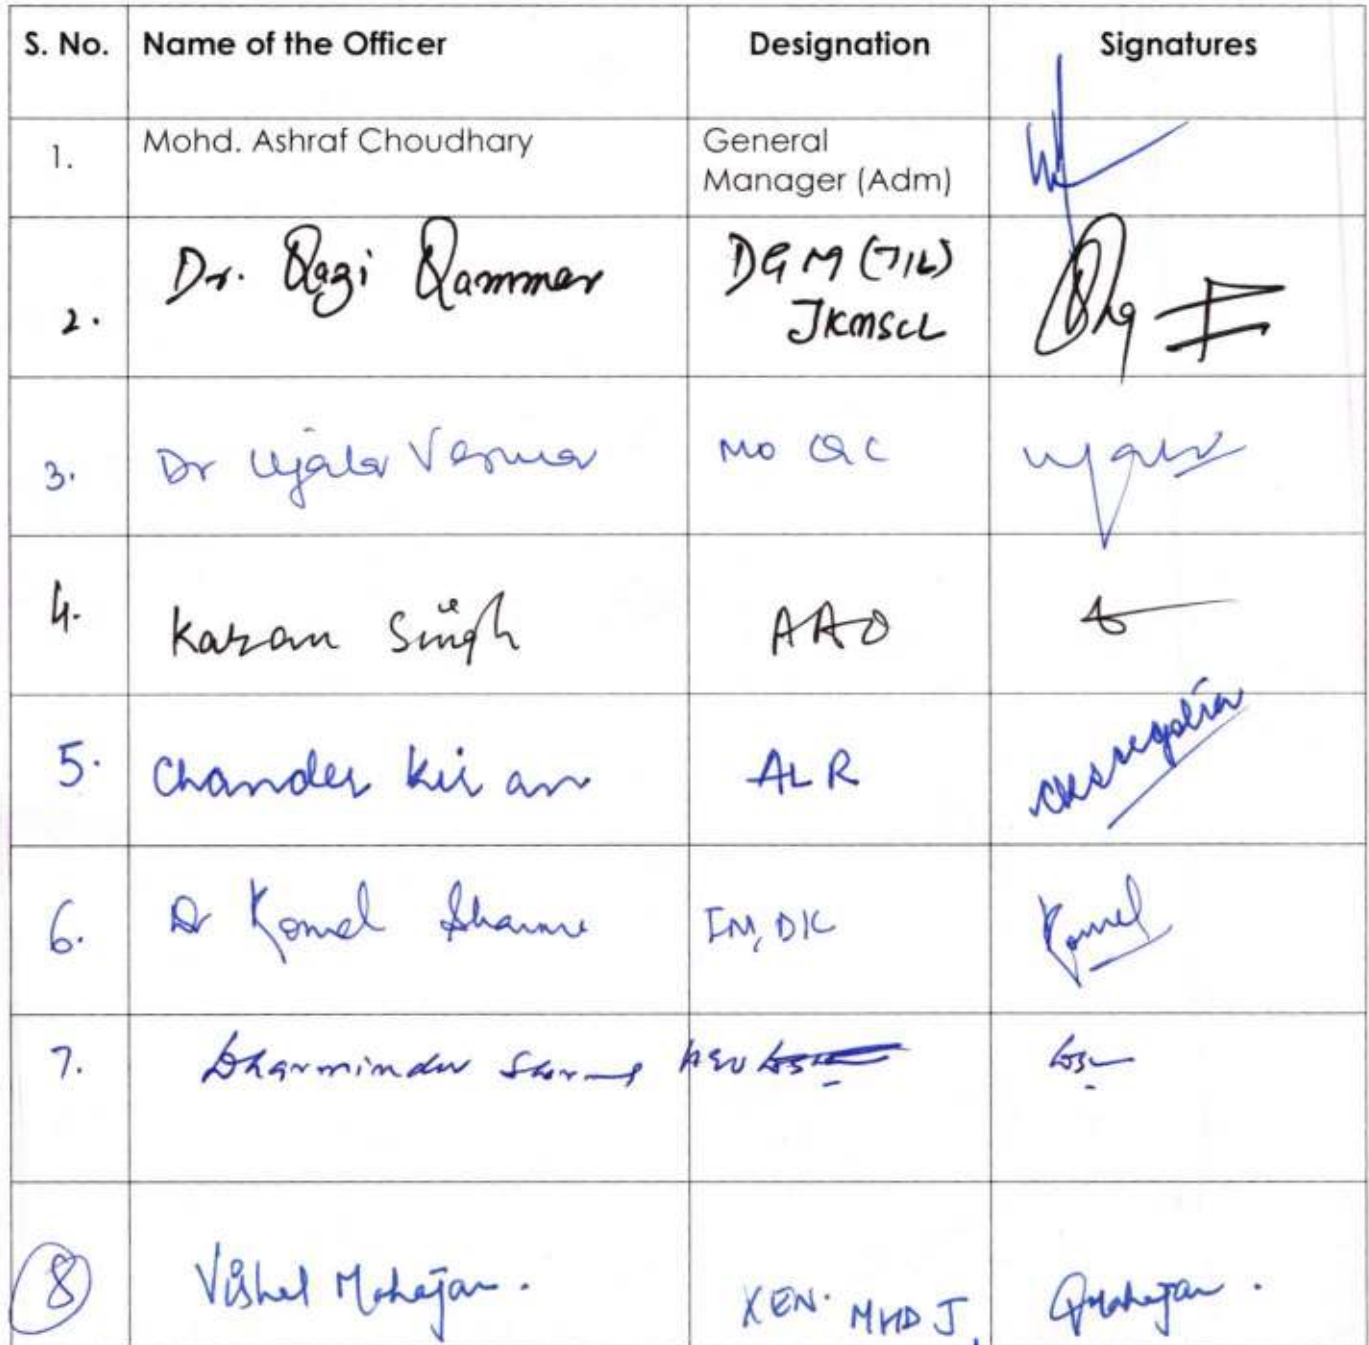 S. No. Name of the Officer Designation Signatures
1. Mohd. Ashraf Choudhary General
Manager (Adm)
2. Dr. Qazi Qammar DGM (TIL)
JKMSCL
3. Dr Ujala Verma MO QC
4. Karan Singh AAO
5. Chander Kiran ALR
6. Dr Komal Sharma IM, DK Komal
7. Dharminder Sharma
8 Vishal Mahajan. XEN. MHD J, Mahajan.